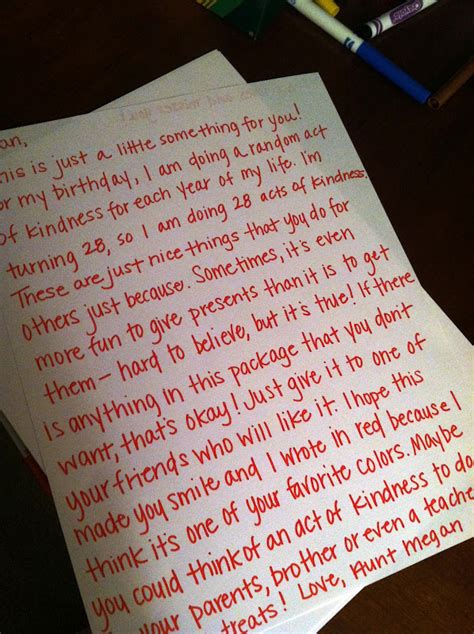 an,
his is just a little something for you!
or my birthday, I am doing a random act
of kindness for each year of my life. I'm
turning 28, so I am doing 28 acts of kindness.
These are just nice things that you do for
others just because. Sometimes, it's even
more fun to give presents than it is to get
them - hard to believe, but it's true! If there
is anything in this package that you don't
want, that's okay! Just give it to one of
your friends who will like it. I hope this
made you smile and I wrote in red because I
think it's one of your favorite colors. Maybe
you could think of an act of kindness to do
your parents, brother or even a teache
treats! Love, Aunt Megan